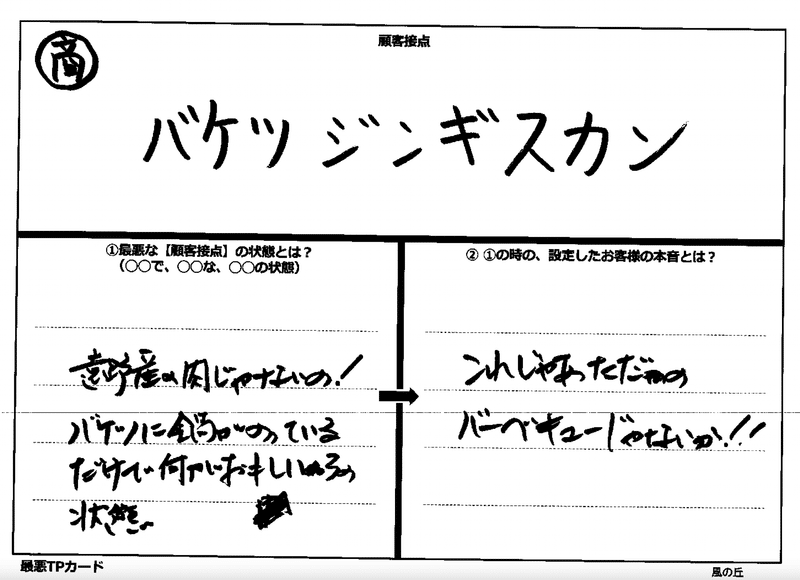 商
顧客接点
バケツ ジンギスカン
①最悪な【顧客接点】の状態とは?
(○○で、○○な、○○の状態)
遠野産の肉じゃないの!
バケツに鍋がのっている
だけで何がおもしいの?の
状態
② ①の時の、設定したお客様の本音とは?
これじゃあっただの
バーベキューじゃないか!!
最悪TPカード
風の丘